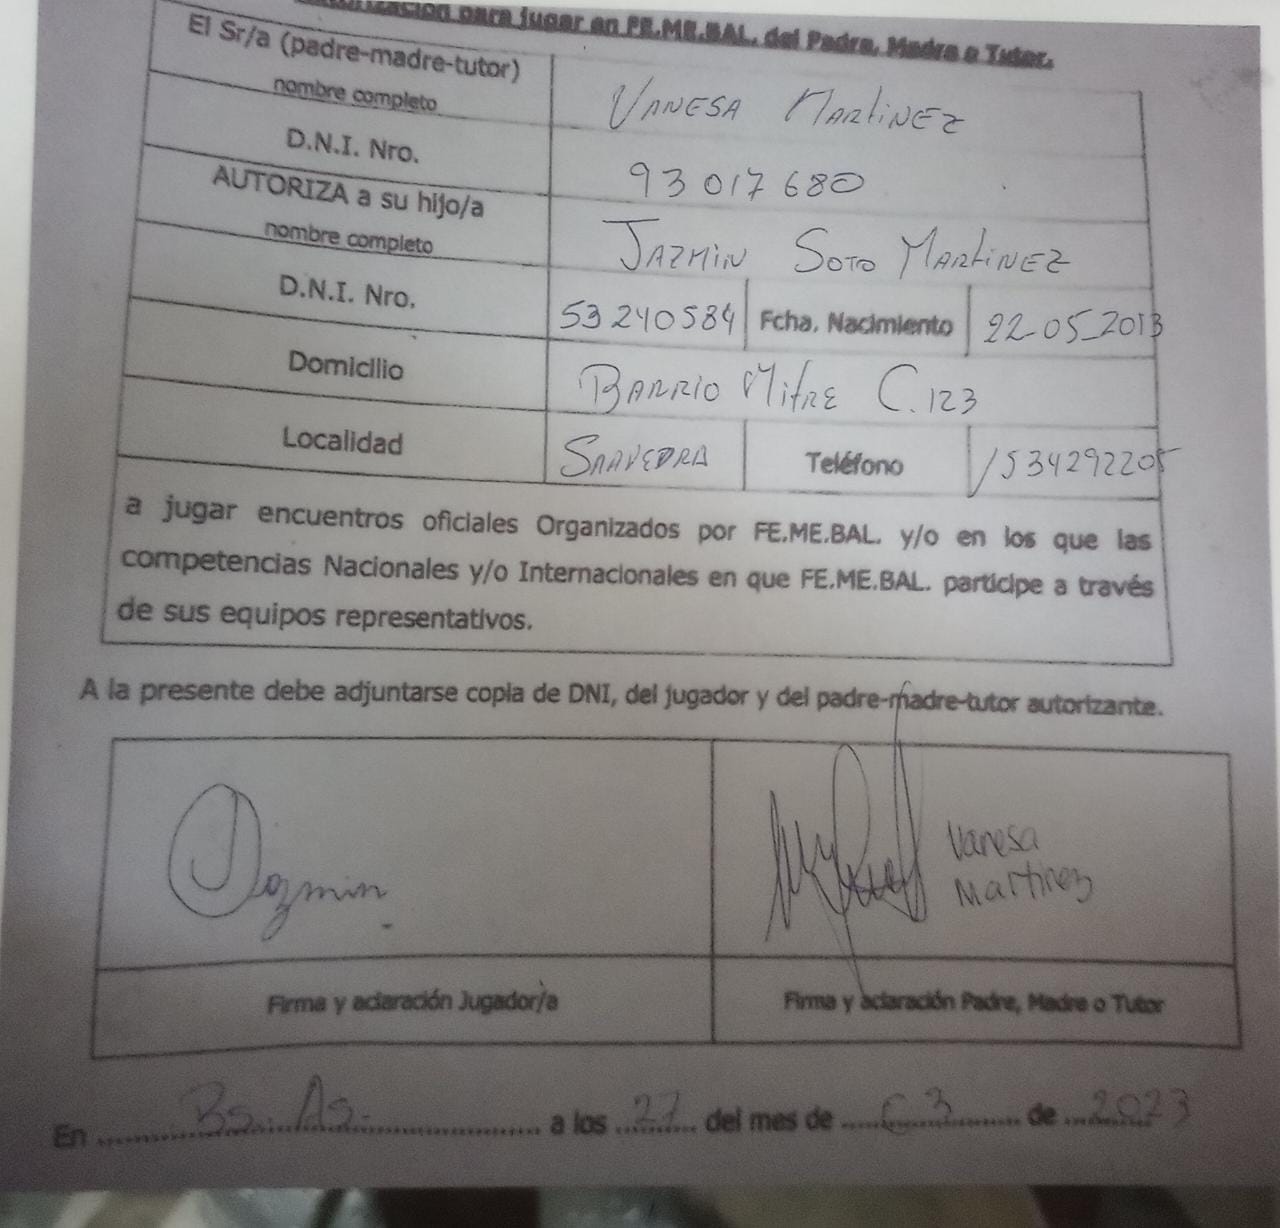 para jugar en FE.ME.BAL. del Padre, Madre o Tutor.
El Sr/a (padre-madre-tutor)
nombre completo
VANESA MARTINEZ
D.N.I. Nro.
93 017 680
AUTORIZA a su hijo/a
nombre completo
JAZMIN SOTO MARTINEZ
D.N.I. Nro.
53 240584
Fcha. Nacimiento
22-05-2013
Domicilio
BARRIO MITRE C.123
Localidad
SAAVEDRA
Teléfono
1534292205
a jugar encuentros oficiales Organizados por FE.ME.BAL. y/o en los que las
competencias Nacionales y/o Internacionales en que FE.ME.BAL. participe a través
de sus equipos representativos.
A la presente debe adjuntarse copia de DNI, del jugador y del padre-madre-tutor autorizante.
Jazmin
Vanesa
Martinez
Firma y aclaración Jugador/a
Firma y aclaración Padre, Madre o Tutor
En Bs. As. a los 27 del mes de 03 de 2023